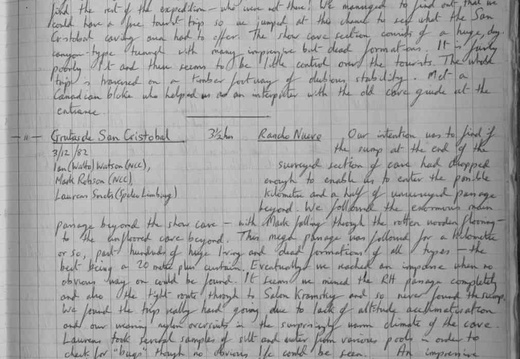 find the rest of the expedition - who were not there! We managed to find out that we
could have a free tourist trip so we jumped at this chance to see what the San
Cristobal caving area had to offer. The show cave section consists of a huge, dry
canyon-type tunnel with many impressive but dead formations. It is fairly
poorly lit and there seems to be little control over the tourists. The whole
trip is traversed on a timber footway of dubious stability. Met a
Canadian bloke who helped us as an interpreter with the old cave guide at the
entrance.
Grutas de San Cristobal 3½hr Rancho Nuevo Our intention was to find if
3/12/82 the sump at the end of the
Ian (Watto) Watson (NCC), surveyed section of cave had dropped
Mark (NCC), enough to enable us to enter the possible
Laurens Smets (Speleo Limburg) kilometre and a half of unsurveyed passage
beyond. We followed the enormous main
passage beyond the show cave - with Mark falling through the rotten wooden flooring -
to the unfloored cave beyond. This mega passage was followed for a kilometre
or so, past hundreds of huge living and dead formations of all types - the
best being a 20 metre plus curtain. Eventually we reached an impasse when no
obvious way on could be found. It seems we missed the RH passage completely
and also the tight route through to Salon and so never found the sump.
We found the trip really hard going due to lack of altitude acclimatisation
and our wearing nylon oversuits in the surprisingly warm climate of the cave.
Laurens took several samples of silt and water from various pools in order to
check for "bugs" though no obvious life could be seen. An impressive